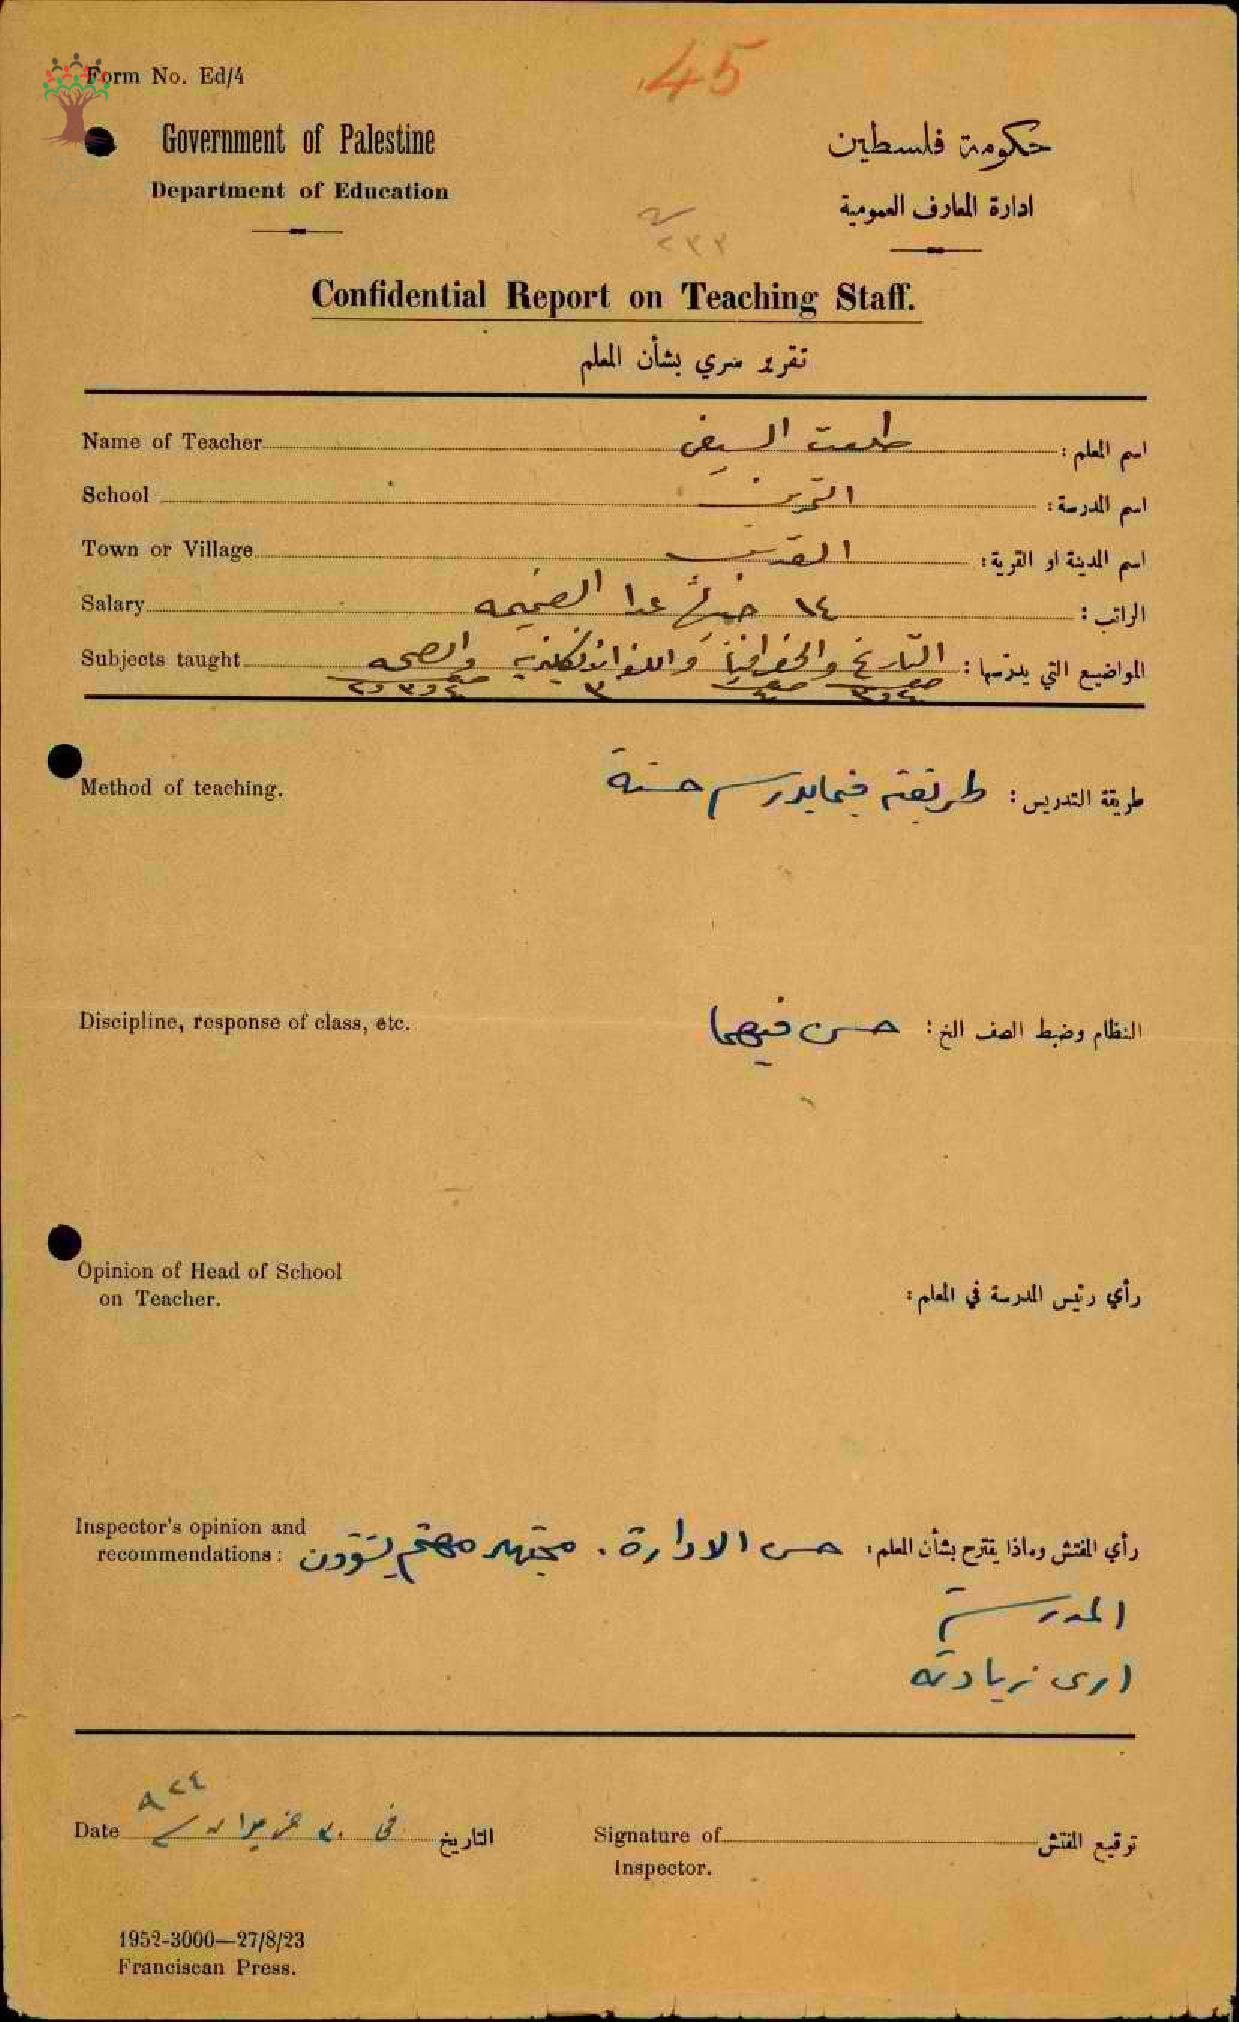 Form No. Ed/4
45
Government of Palestine
حكومة فلسطين
Department of Education
ادارة المعارف العمومية
٢٣٣
Confidential Report on Teaching Staff.
تقرير سري بشأن المعلم
Name of Teacher طلعت السيفي اسم المعلم :
School التمرين اسم المدرسة :
Town or Village القدس اسم المدينة او القرية :
Salary ١٤ جنيهاً عدا الضميمه الراتب :
Subjects taught التاريخ والجغرافيا واللغة الانكليزيه والصحه المواضيع التي يدرسها :
Method of teaching. طريقته فيما يدرسه حسنة طريقة التدريس :
Discipline, response of class, etc. حسن فيهما النظام وضبط الصف الخ :
Opinion of Head of School
on Teacher.
رأي رئيس المدرسة في المعلم :
Inspector's opinion and
recommendations :
رأي المفتش وماذا يقترح بشأن المعلم : حسن الادارة . مجتهد مهتم بشؤون
المدرسة
ارى زيادته
٩٢٤
Date في ٣٠ حزيران سنة التاريخ
Signature of توقيع المفتش
Inspector.
1952-3000—27/8/23
Franciscan Press.